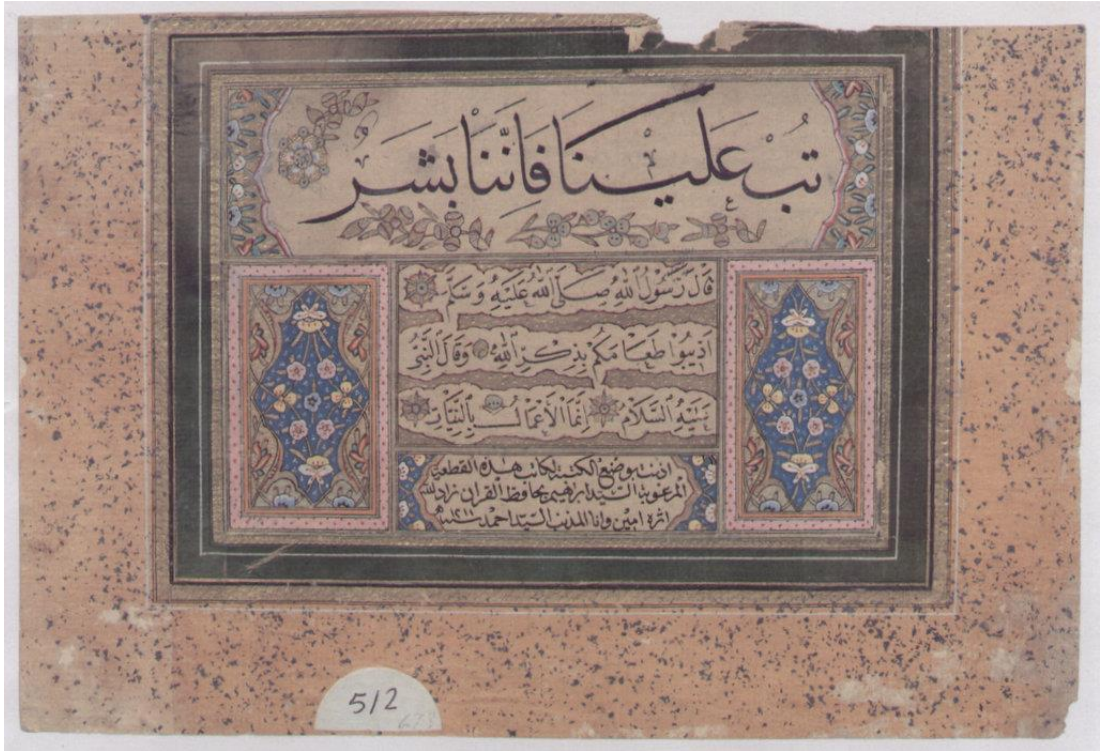 تُبْ عَلَيْنَا فَاِنَّنَا بَشَرَ
قَالَ رَسُولُ اللهِ صَلَّى اللهُ عَلَيْهِ وَسَلَّمَ
اذيبوا طَعَامَكُمْ بِذِكْرِ اللهِ وَقَالَ النَّبِيُّ
عَلَيْهِ السَّلَامُ اِنَّمَا الْاَعْمَالُ بِالنِّيَّاتِ
اذنت بوضع الكتبة لكاتب هذه القطعة
المرغوبة السيد ابرهيم بحافظ القران زاد الله
اثره امين وانا المذنب السيد احمد سنه ١٢١١
512